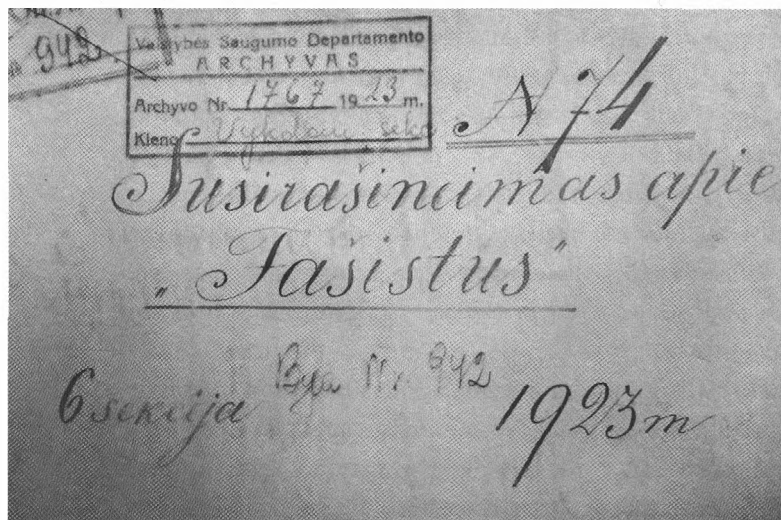 942
Valstybės Saugumo Departamento
ARCHYVAS
Archyvo Nr. 1767 1923 m.
Kieno Vykdom. sek.
N 74
Susirašinėimas apie
„Fašistus"
Byla Nr. 942
6 sekcija 1923 m